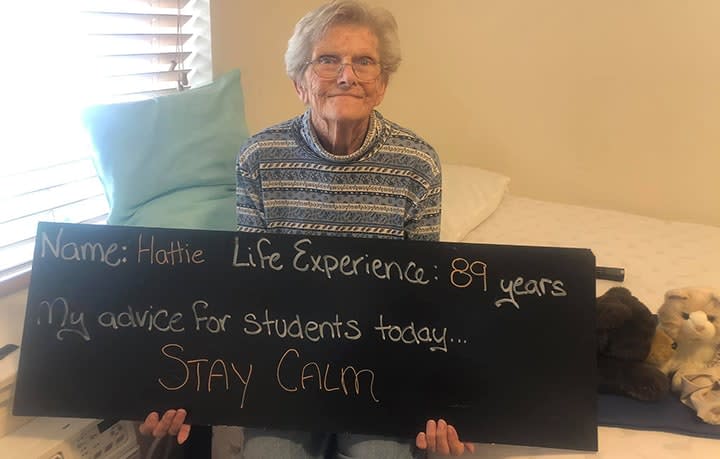 Name: Hattie Life Experience: 89 years
My advice for students today...
STAY CALM